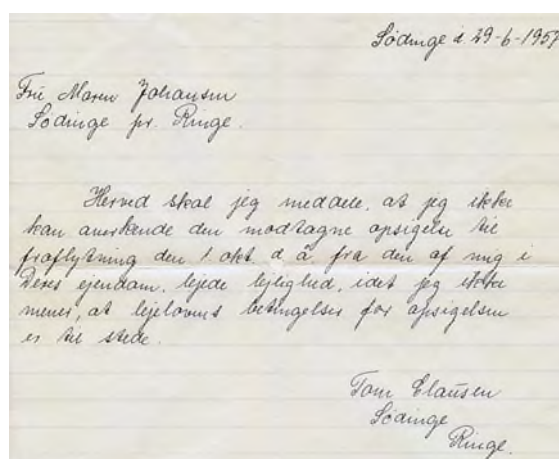 Sødinge d. 29-6-1957
Fru Maren Johansen
Sødinge pr. Ringe.
Herved skal jeg meddele, at jeg ikke
kan anerkende den modtagne opsigelse til
fraflytning den 1. okt. d. å. fra den af mig i
Deres ejendom, lejede lejlighed, idet jeg ikke
mener, at lejelovens betingelser for opsigelsen
er til stede.
Tom Clausen
Sødinge
Ringe.